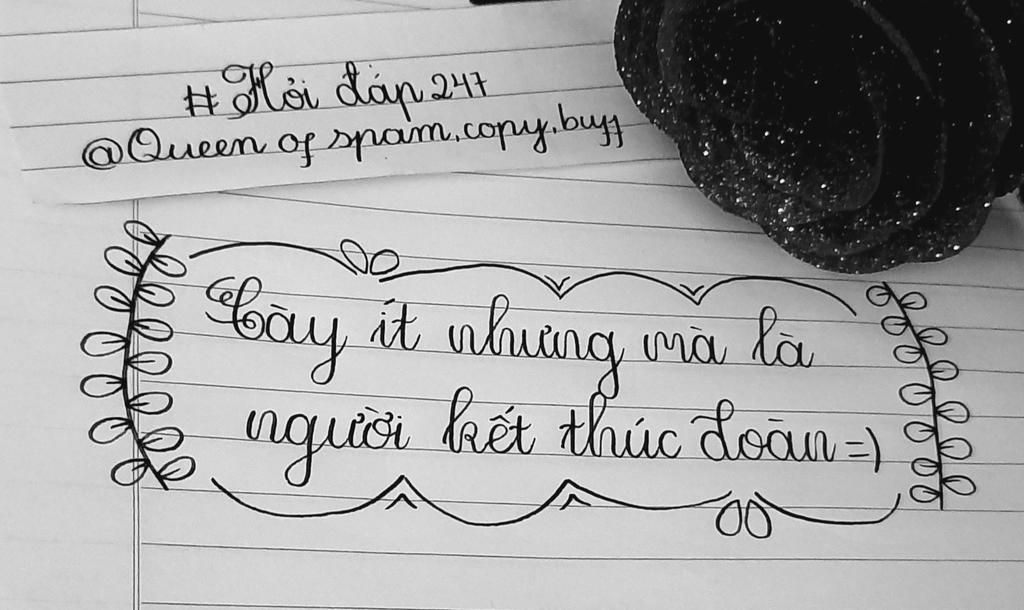 #Hỏi đáp 247
@Queen of spam.copy.buff
Cày ít nhưng mà là
người kết thúc đoàn =)